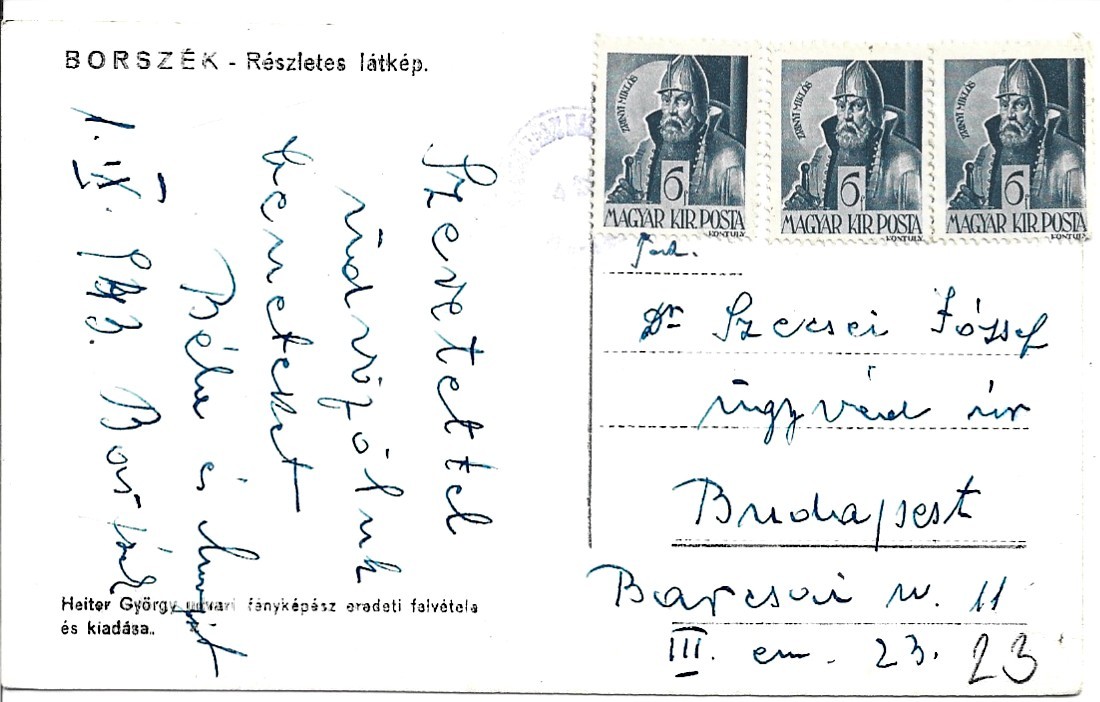 BORSZÉK - Részletes látkép.
Szeretettel
üdvözölünk
benneteket
Béla és
1. IX. 943. Borszék
Heiter György udvari fényképész eredeti felvétele
és kiadása.
ZRINYI MIKLÓS
6f
MAGYAR KIR. POSTA
KONTULY
ZRINYI MIKLÓS
6f
MAGYAR KIR. POSTA
KONTULY
ZRINYI MIKLÓS
6f
MAGYAR KIR. POSTA
KONTULY
Dr Szecsei József
ügyvéd úr
Budapest
Barcsai u. 11
III. em. 23. 23